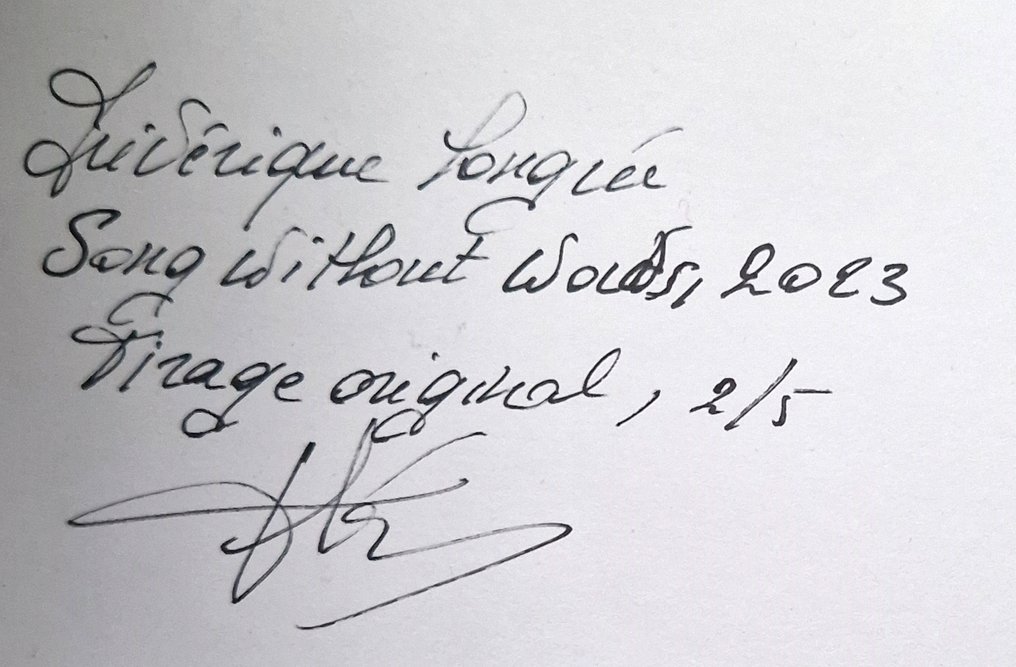 Frédérique Longrée
Song Without Words, 2023
Tirage original, 2/5